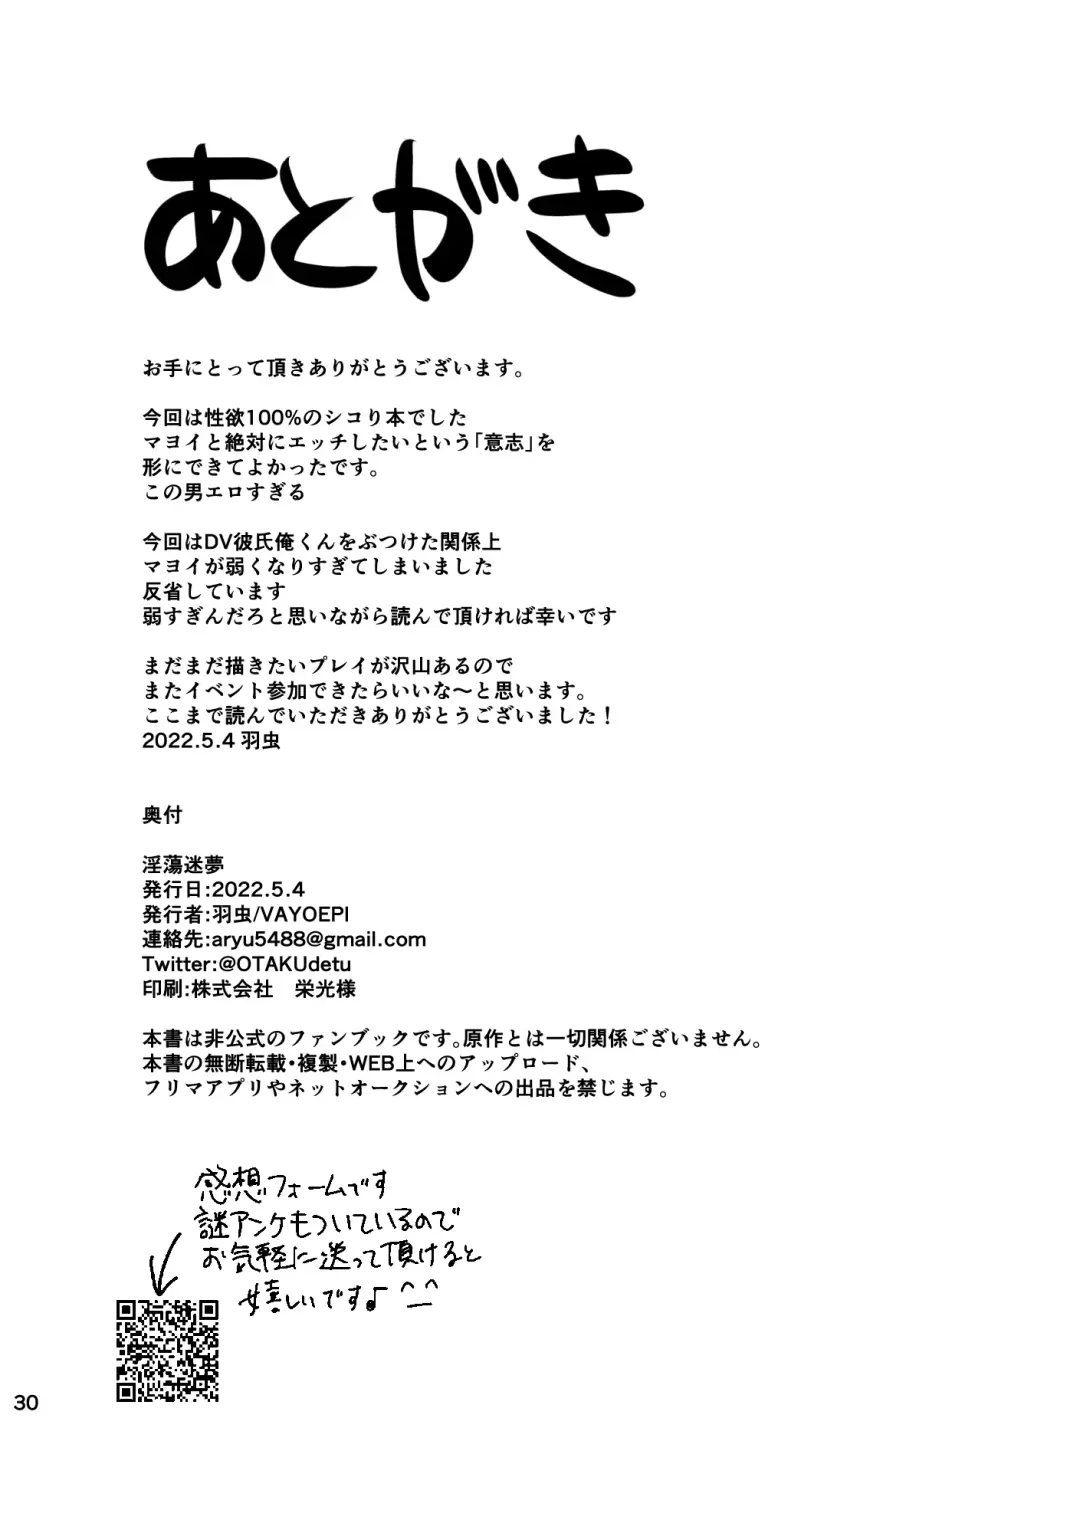 あとがき
お手にとって頂きありがとうございます。
今回は性欲100%のシコり本でした
マヨイと絶対にエッチしたいという「意志」を
形にできてよかったです。
この男エロすぎる
今回はDV彼氏俺くんをぶつけた関係上
マヨイが弱くなりすぎてしまいました
反省しています
弱すぎんだろと思いながら読んで頂ければ幸いです
まだまだ描きたいプレイが沢山あるので
またイベント参加できたらいいな〜と思います。
ここまで読んでいただきありがとうございました！
2022.5.4 羽虫
奥付
淫蕩迷夢
発行日:2022.5.4
発行者:羽虫/VAYOEPI
連絡先:aryu5488@gmail.com
Twitter:@OTAKUdetu
印刷:株式会社　栄光様
本書は非公式のファンブックです。原作とは一切関係ございません。
本書の無断転載・複製・WEB上へのアップロード、
フリマアプリやネットオークションへの出品を禁じます。
感想フォームです
謎アンケもついているので
お気軽に送って頂けると
嬉しいです♪^_^
30